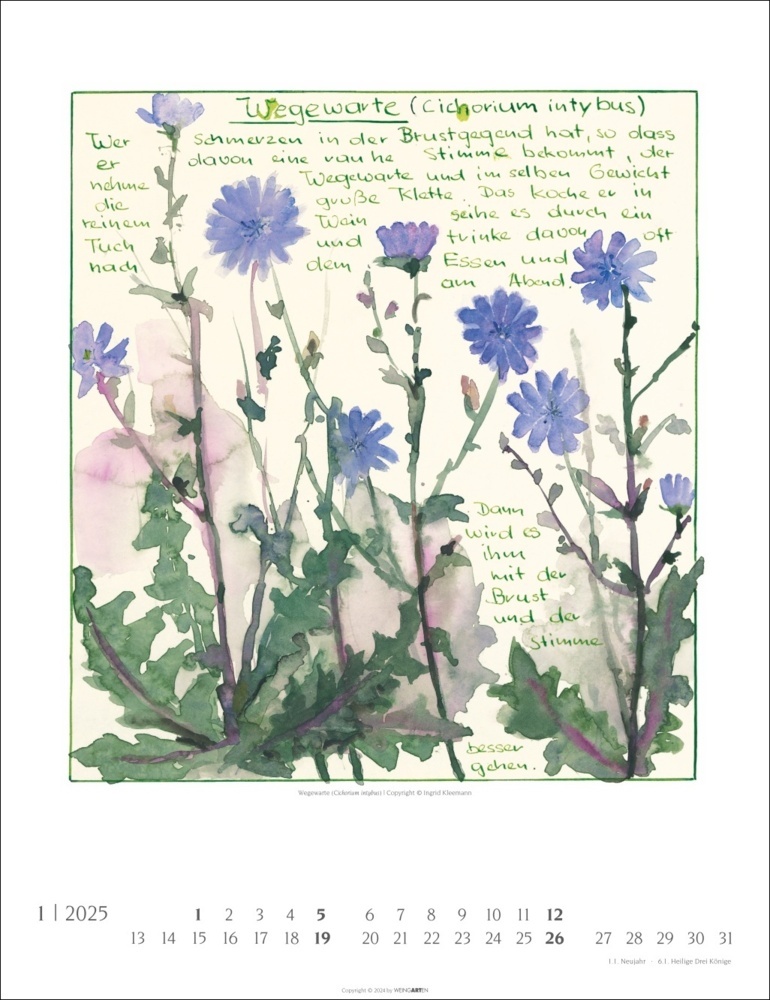 Wegewarte (Cichorium intybus)
Wer schmerzen in der Brustgegend hat, so dass
er davon eine rauhe Stimme bekommt, der
nehme Wegewarte und im selben Gewicht
die große Klette. Das koche er in
reinem Wein seihe es durch ein
Tuch und trinke davon oft
nach dem Essen und
am Abend.
Dann
wird es
ihm
mit der
Brust
und der
Stimme
besser
gehen.
Wegewarte (Cichorium intybus) | Copyright © Ingrid Kleemann
1 | 2025 1 2 3 4 5 6 7 8 9 10 11 12
13 14 15 16 17 18 19 20 21 22 23 24 25 26 27 28 29 30 31
1.1. Neujahr · 6.1. Heilige Drei Könige
Copyright © 2024 by WEINGARTEN